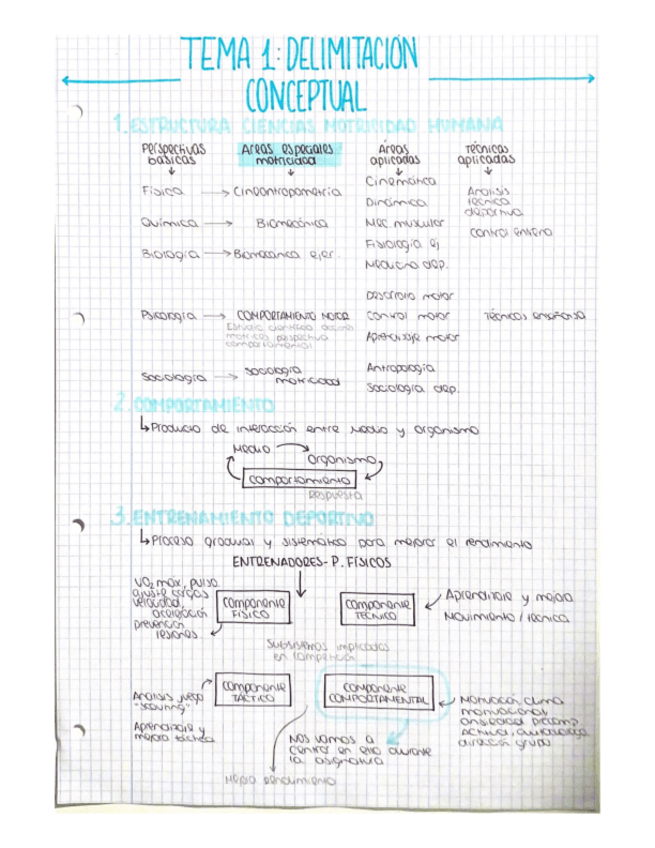 TEMA 1: DELIMITACIÓN
CONCEPTUAL
1. ESTRUCTURA CIENCIAS MOTRICIDAD HUMANA
Perspectivas básicas
Áreas especiales motricidad
Áreas aplicadas
Técnicas aplicadas
Física → Cineantropometría
Cinemática
Dinámica
Análisis técnica deportiva
Química → Biomecánica
Mec muscular
Control entreno
Biología → Biomecánica ejer.
Fisiología ej
Medicina dep.
Desarrollo motor
Psicología → COMPORTAMIENTO MOTOR
Control motor
Técnicas enseñanza
Estudio científico
motrices perspectiva
comportamental
Aprendizaje motor
Sociología → Sociología motricidad
Antropología
Sociología dep.
2. COMPORTAMIENTO
↳ Producto de interacción entre Medio y organismo
Medio → organismo
comportamiento
Respuesta
3. ENTRENAMIENTO DEPORTIVO
↳ Proceso gradual y sistemático para mejorar el rendimiento
ENTRENADORES - P. FÍSICOS
VO2 max, pulso
ajuste cargas
velocidad,
aceleración
prevención
lesiones
Componente FÍSICO
Componente TÉCNICO
Aprendizaje y mejora
Movimiento / técnica
Subsistemas implicados
en competición
Análisis juego
"scouting"
Aprendizaje y
mejora táctica
Componente TÁCTICO
Componente COMPORTAMENTAL
Motivación, clima
motivacional,
ansiedad
dirección grupo
Nos vamos a
centrar en esto durante
la asignatura
Mejora rendimiento